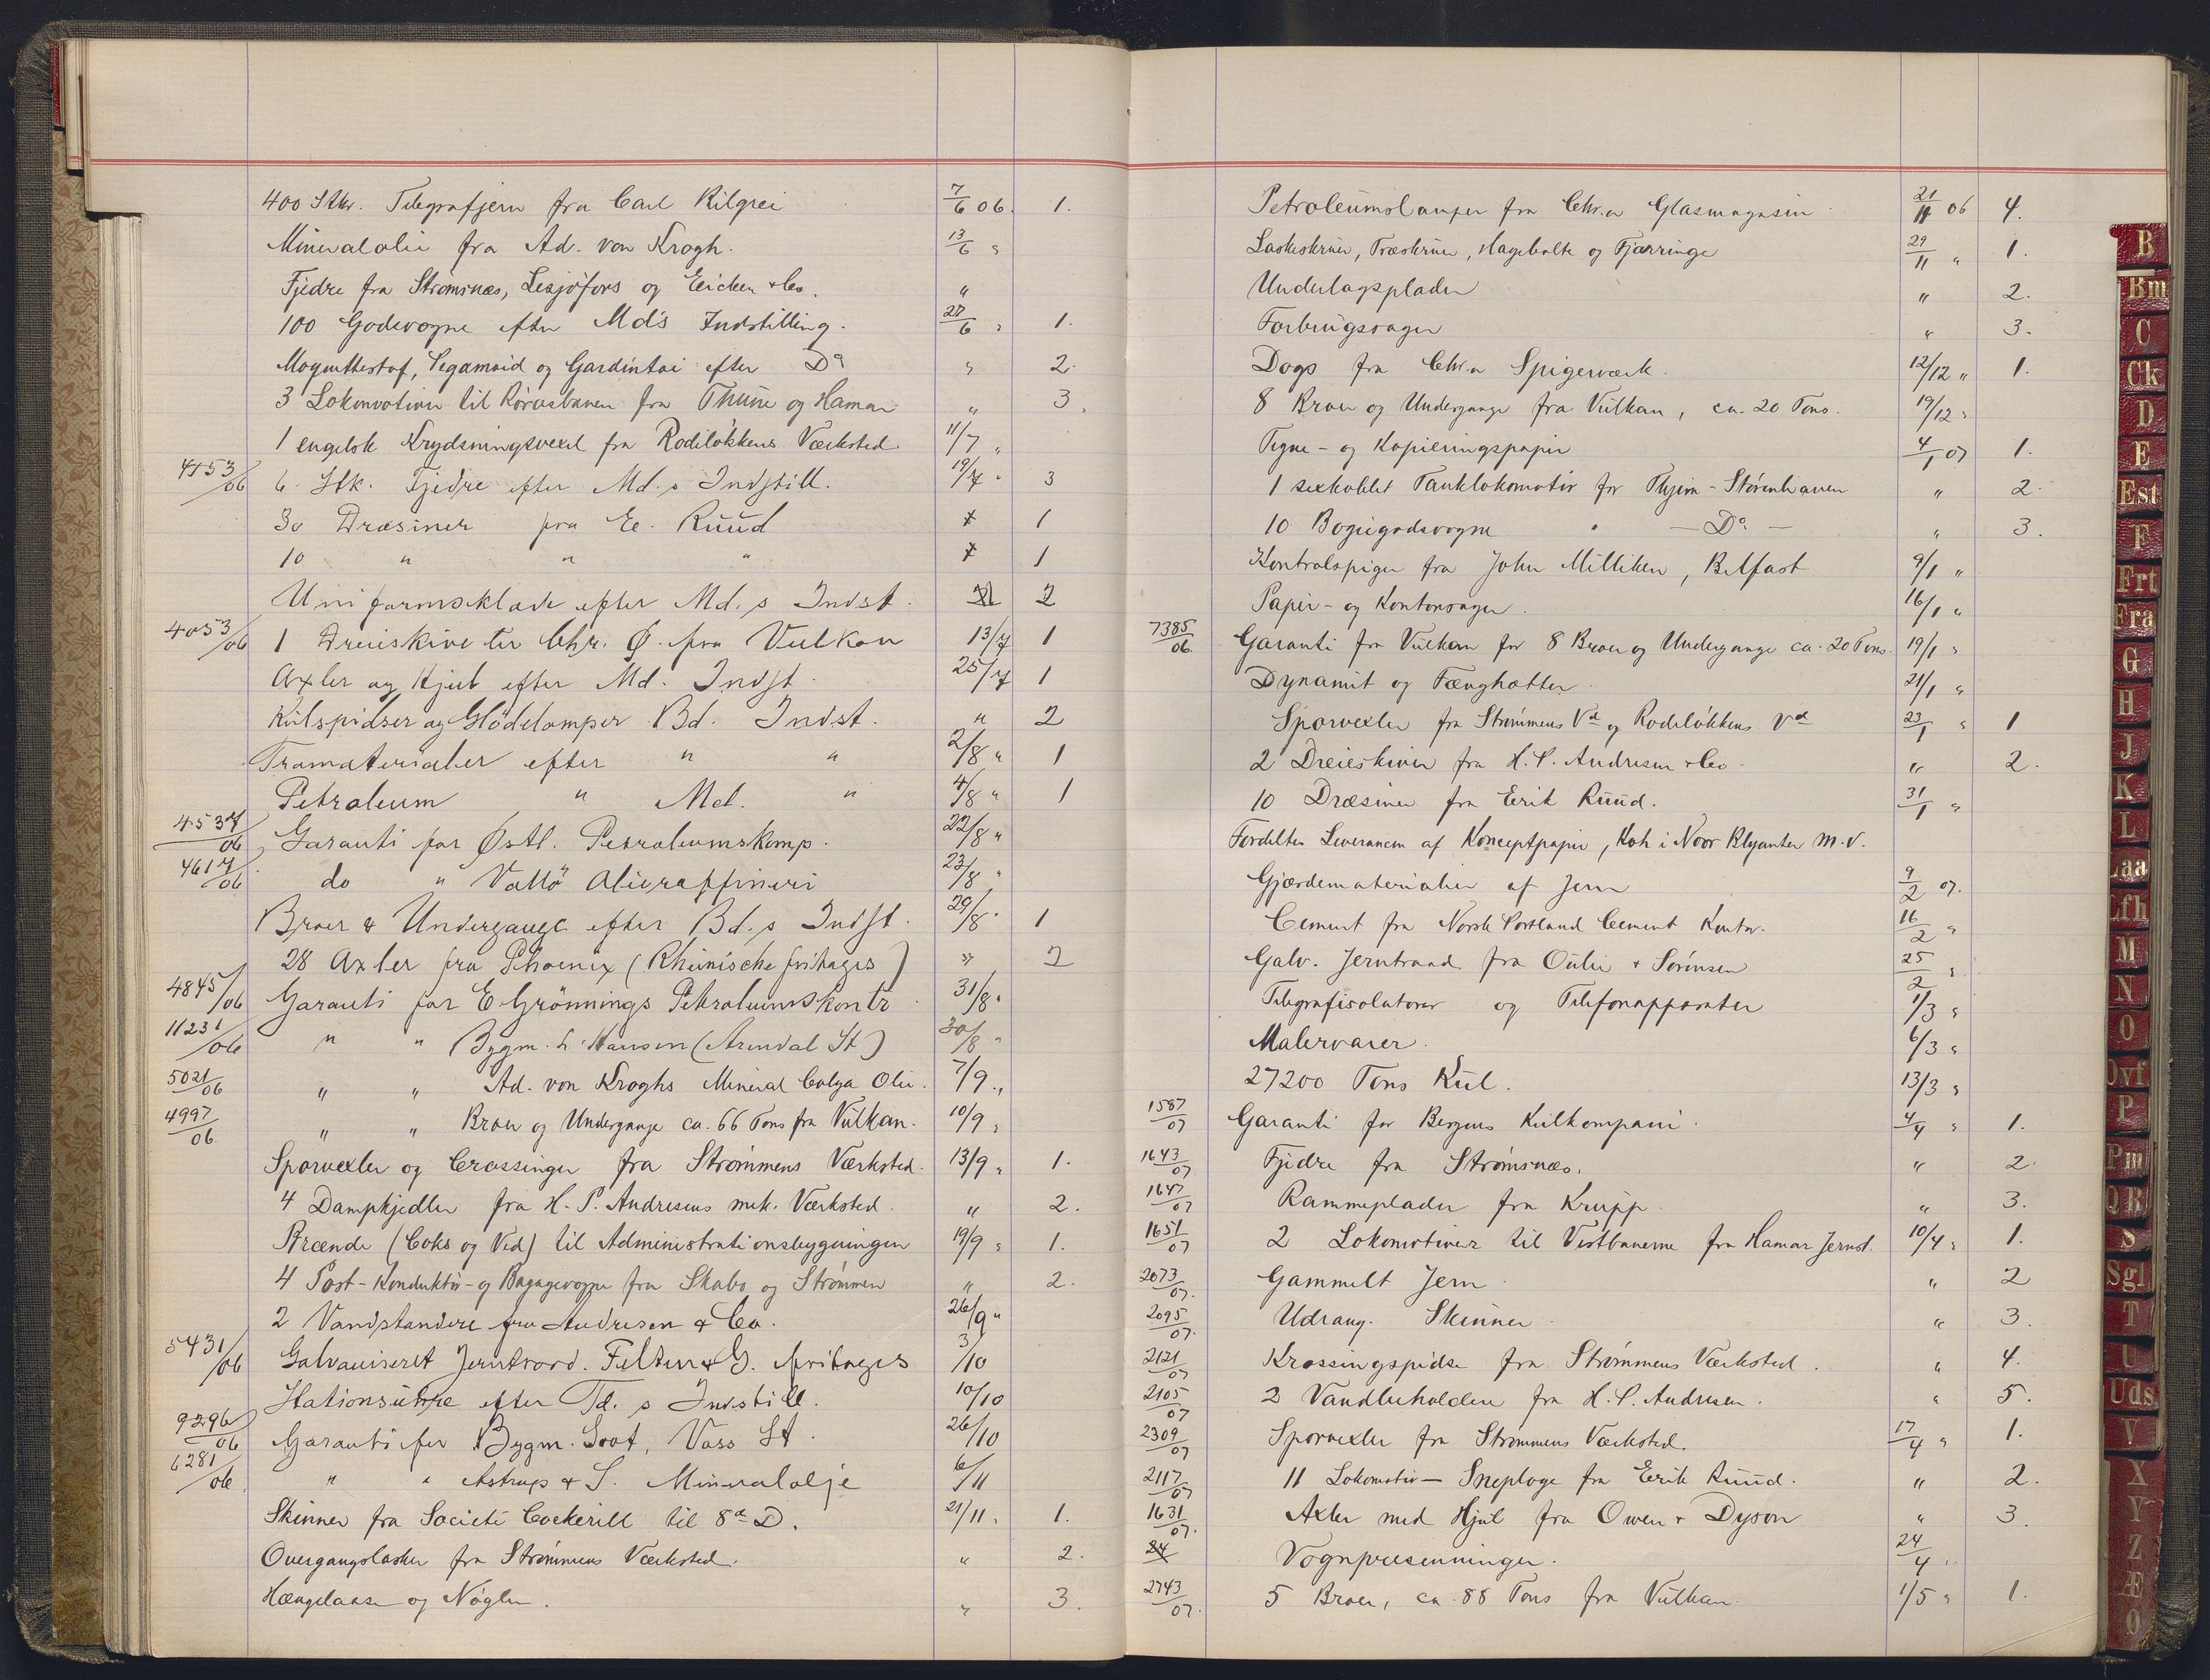 400 Stkr. Telegrafjern fra Carl Kilgrei 7/6 06. 1.
Mineralolie fra Ad. von Krogh. 13/6 "
Fjedre fra Strømsnæs, Lesjöfors og Eicken & Co. "
100 Godsvogne efter Md's Indstilling. 27/6 " 1.
Moquettestof, Pegamoid og Gardintøi efter Do " 2.
3 Lokomotiver til Rørosbanen fra Thune og Hamar " 3.
1 engelsk Krydsningsvexel fra Rodeløkkens Værksted 11/7 "
4153/06 6 Stk. Fjedre efter Md.s Indstill. 19/7 " 3
30 Dræsiner fra E. Ruud 1
10 " " " 1
Uniformsklæde efter Md.s Indst. 2
4053/06 1 Dreieskive til Chr. Ø. fra Vulkan 13/7 1
Axler og Hjul efter Md. Indst. 25/7 1
Kulspidser og Glødelamper Bd. Indst. " 2
Træmaterialier efter " " 2/8 " 1
Petroleum " Md. " 4/8 " 1
4537/06 Garanti for Østl. Petroleumskomp. 22/8 "
4617/06 do " Vallö Olieraffineri 23/8 "
Broer & Undergange efter Bd.s Indst. 29/8 " 1
28 Axler fra Phoenix (Rheinische fritages) " 2
4845/06 Garanti for E. Grönnings Petroleumskontr 31/8 "
11231/06 " " Bygm. L. Hansen (Arendal St) 30/8 "
5021/06 " " Ad. von Kroghs Mineral Colza Olie. 7/9 "
4997/06 " " Broer og Undergange ca. 66 Tons fra Vulkan. 10/9 "
Sporvexler og Crossinger fra Strømmens Værksted. 13/9 " 1.
4 Dampkjedler fra H. P. Andresens mek. Værksted. " 2.
Brænde (Coks og Ved) til Administrationsbygningen 19/9 " 1.
4 Post-Konduktør- og Bagagevogne fra Skabo og Strømmen " 2.
2 Vandstandere fra Andresen & Co. 26/9 "
5431/06 Galvaniseret Jerntraad. Felten & G. fritages 3/10
Stationsuhre efter Td.s Indstill. 10/10
9296/06 Garanti for Bygm. Groot, Voss St. 26/10
6281/06 " " Astrup & S. Mineralolje 6/11
Skinner fra Societé Cockerill til 8de D. 21/11 " 1.
Overgangslasker fra Strømmens Værksted. " 2.
Hængelaase og Nøgler. " 3.
Petroleumslamper fra Chr.a Glasmagasin 21/11 06 4.
Laskeskruer, Træskruer, Hagebolte og Fjærringe 29/11 " 1.
Underlagsplader " 2.
Forbrugssager " 3.
Dogs fra Chr.a Spigerværk. 12/12 " 1.
8 Broer og Undergange fra Vulkan, ca. 20 Tons. 19/12 "
Tegne- og Kopieringspapir 4/1 07 1.
1 sexkoblet Tanklokomotiv for Thjem-Størenbanen " 2.
10 Bogiegodsvogne " — Do — " 3.
Kontrolspiger fra John Milliken, Belfast 9/1 "
Papir- og Kontorsager. 16/1 "
7385/06. Garanti fra Vulkan for 8 Broer og Undergange ca. 20 Tons. 19/1 "
Dynamit og Fænghætter 21/1 "
Sporvexler fra Strømmens Vd og Rodeløkkens Vd 23/1 " 1
2 Dreieskiver fra H. P. Andresen & Co " 2.
10 Dræsiner fra Erik Ruud. 31/1 "
Fordeltes Leverancen af Konceptpapir, Koh i Noor Blyanter m.v.
Gjærdematerialier af Jern 9/2 07.
Cement fra Norsk Portland Cement Kontor. 16/2 "
Galv. Jerntraad fra Oulie & Sørensen 25/2 "
Telegrafisolatorer og Telefonapparater 1/3 "
Malervarer. 6/3 "
27200 Tons Kul. 13/3 "
1587/07 Garanti for Bergens Kulkompani. 4/4 " 1.
1643/07 Fjedre fra Strømsnæs. " 2.
1647/07 Rammeplader fra Krupp " 3.
1651/07 2 Lokomotiver til Vestbanerne fra Hamar Jernst. 10/4 " 1.
2073/07. Gammelt Jern " 2
2095/07. Udrang. Skinner " 3.
2121/07 Krossingspidse fra Strømmens Værksted. " 4.
2105/07 2 Vandbeholdere fra H. P. Andresen. " 5.
2309/07 Sporvexler fra Strømmens Værksted. 17/4 " 1.
2117/07 11 Lokomotiv-Sneploge fra Erik Ruud. " 2.
1631/07. Axler med Hjul fra Owen & Dyson " 3.
24 Vognpresenninger. 24/4 "
2743/07. 5 Broer, ca. 88 Tons fra Vulkan. 1/5 " 1.
B
Bm
C
Ck
D
E
Est
F
Frt
Fra
G
H
J
K
L
Laa
Lfh
M
N
O
Ovf
P
Pm
QR
S
Sgl
T
U
Uds
V
X
Y
Z
Æ
Ø